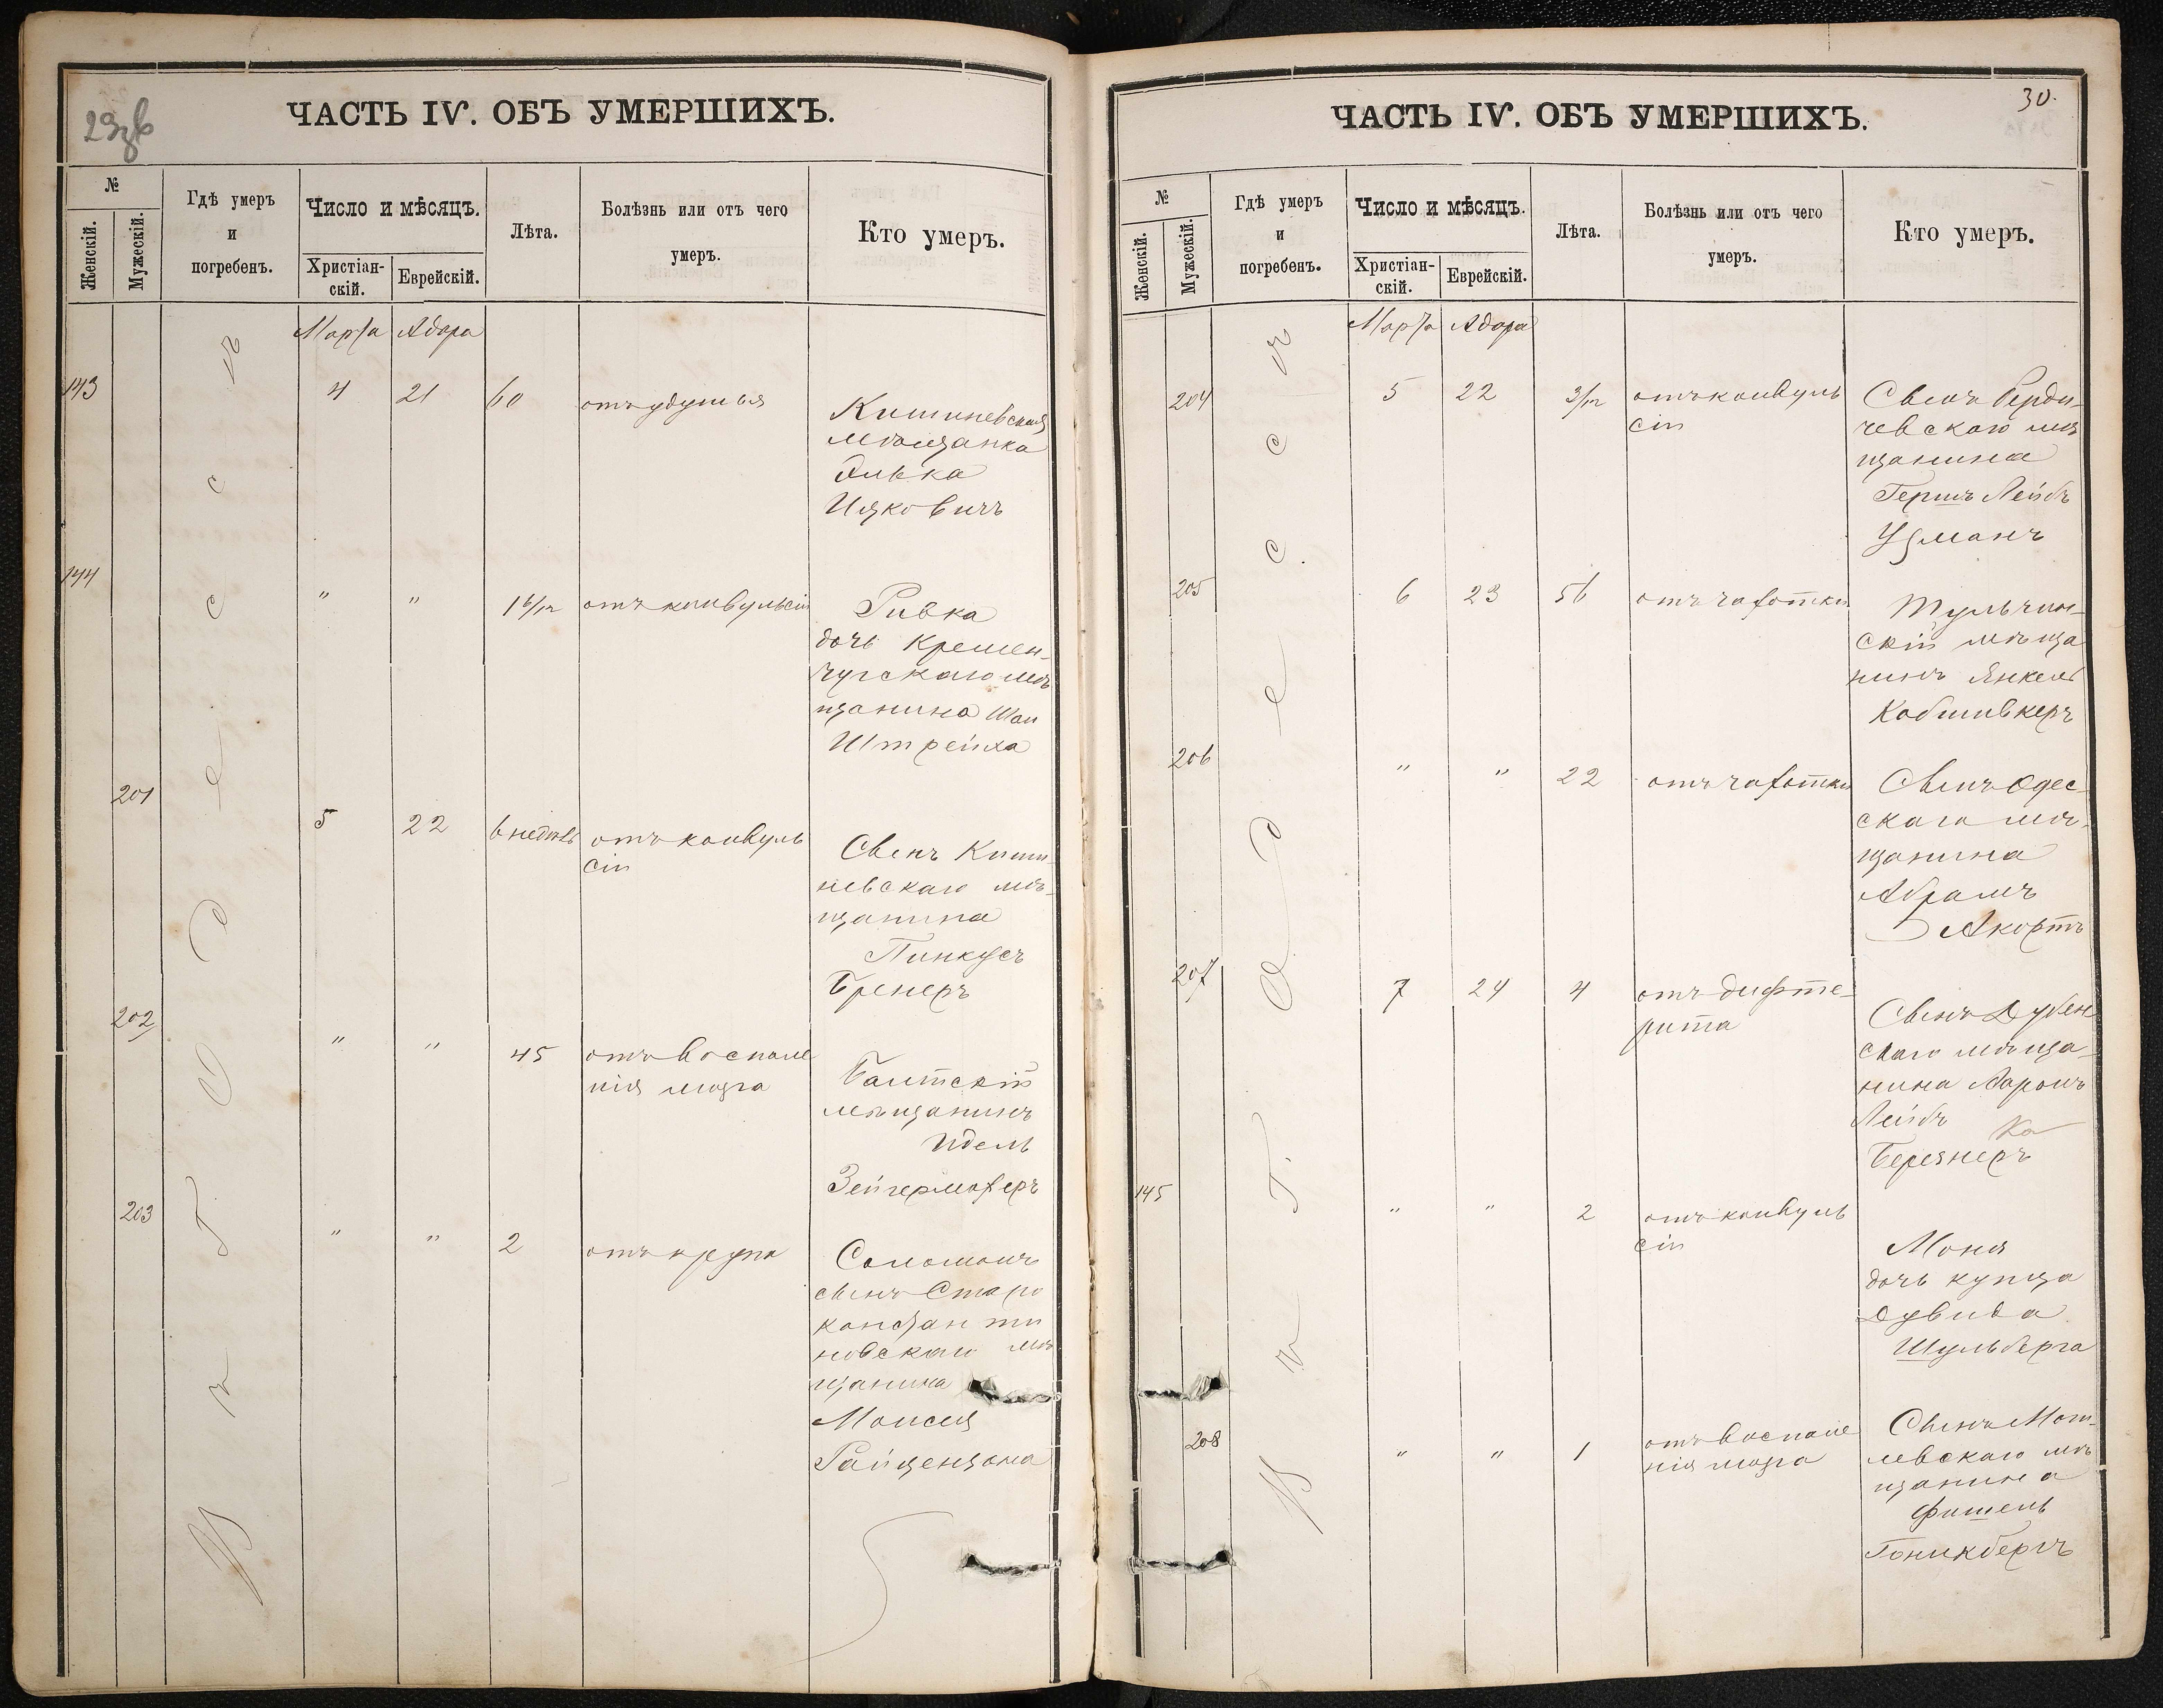 29зв
ЧАСТЬ IV. ОБЪ УМЕРШИХЪ.
№
Женскій.
Мужескій.
Гдѣ умеръ
и
погребенъ.
Число и мѣсяцъ.
Христіан-
скій.
Еврейскій.
Лѣта.
Болѣзнь или отъ чего
умеръ.
Кто умеръ.
Въ г. Одессѣ
Марта Адара
143 4 21 60 отъ удушья
Кишиневская
мѣщанка
Элька
Ицковичъ
144 " " 1 6/12 отъ конвульсіи
Ривка
дочь Кремен-
чугскаго мѣ
щанина Шаи
Штрейха
201 5 22 6 недѣль отъ конвуль
сіи
Сынъ Киши-
невскаго мѣ-
щанина
Пинкусъ
Бренеръ
202 " " 45 отъ воспале
нія мозга
Балтскій
мѣщанинъ
Идель
Зейгермахеръ
203 " " 2 отъ крупа
Соломонъ
сынъ Старо
константи
новскаго мѣ
щанина
Моисея
Райценцона
30.
ЧАСТЬ IV. ОБЪ УМЕРШИХЪ.
№
Женскій.
Мужескій.
Гдѣ умеръ
и
погребенъ.
Число и мѣсяцъ.
Христіан-
скій.
Еврейскій.
Лѣта.
Болѣзнь или отъ чего
умеръ.
Кто умеръ.
Въ г. Одессѣ
Марта Адара
204 5 22 3/12 отъ конвуль
сіи
Сынъ Берди-
чевскаго мѣ
щанина
Гершъ Лейбъ
Уманъ
205 6 23 56 отъ чахотки
Тульчин-
скій мѣща
нинъ Янкель
Кобыливкеръ
206 " " 22 отъ чахотки
Сынъ Одес-
скаго мѣ-
щанина
Абрамъ
Акортъ
207 7 24 4 отъ дифте-
рита
Сынъ Дубен
скаго мѣща-
нина Аронъ
Лейбъ Ка
Березнеръ
145 " " 2 отъ конвуль
сіи
Моня
дочь купца
Дувида
Шульберга
208 " " 1 отъ воспале
нія мозга
Сынъ Мог-
левскаго мѣ
щанина
Фишель
Гоникбергъ